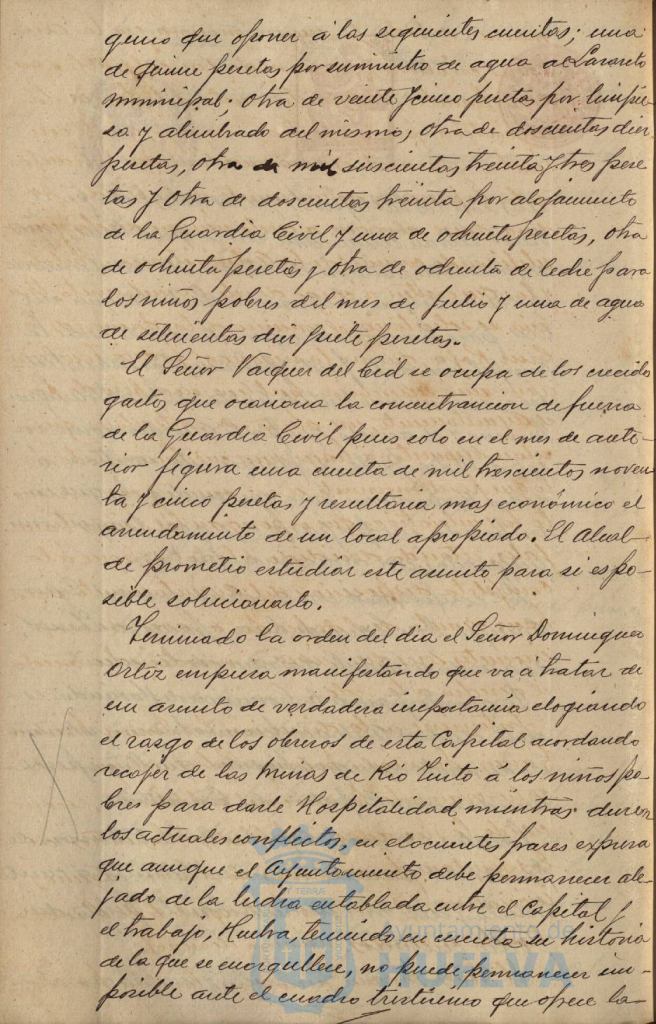 que oponer á las siguientes cuentas; una
de quince pesetas por suministro de agua al Lazareto
municipal; otra de veinte y cinco pesetas por limpie-
sa y alumbrado del mismo, otra de doscientas diez
pesetas, otra de mil seiscientas treinta y tres pese
tas y otra de doscientas treinta por alojamiento
de la Guardia Civil y una de ochenta pesetas, otra
de ochenta pesetas y otra de ochenta de leche para
los niños pobres del mes de Julio y una de agua
de setecientas diez y siete pesetas.
El Señor Vazquez del Cid se ocupa de los crecidos
gastos que ocasiona la concentrancion de fuerza
de la Guardia Civil pues solo en el mes de ante-
rior figura una cuenta de mil trescientos noven-
ta y cinco pesetas y resultaria mas económico el
arrendamiento de un local apropiado. El Alcal-
de prometio estudiar este asunto para si es po-
sible solucionarlo.
Terminado la orden del dia el Señor Dominguez
Ortiz empieza manifestando que va á tratar de
un asunto de verdadera importancia elogiando
el rasgo de los obreros de esta Capital acordando
recojer de las Minas de Rio Tinto á los niños po-
bres para darle Hospitalidad mientras duren
los actuales conflictos, en elocuentes frases expresa
que aunque el Ayuntamiento debe permanecer ale-
jado de la lucha entablada entre el Capital y
el trabajo, Huelva, teniendo en cuenta su historia
de la que se enorgullece, no puede permanecer im-
posible ante el cuadro tristísimo que ofrece la-
TERRAE
Ayuntamiento de
HUELVA